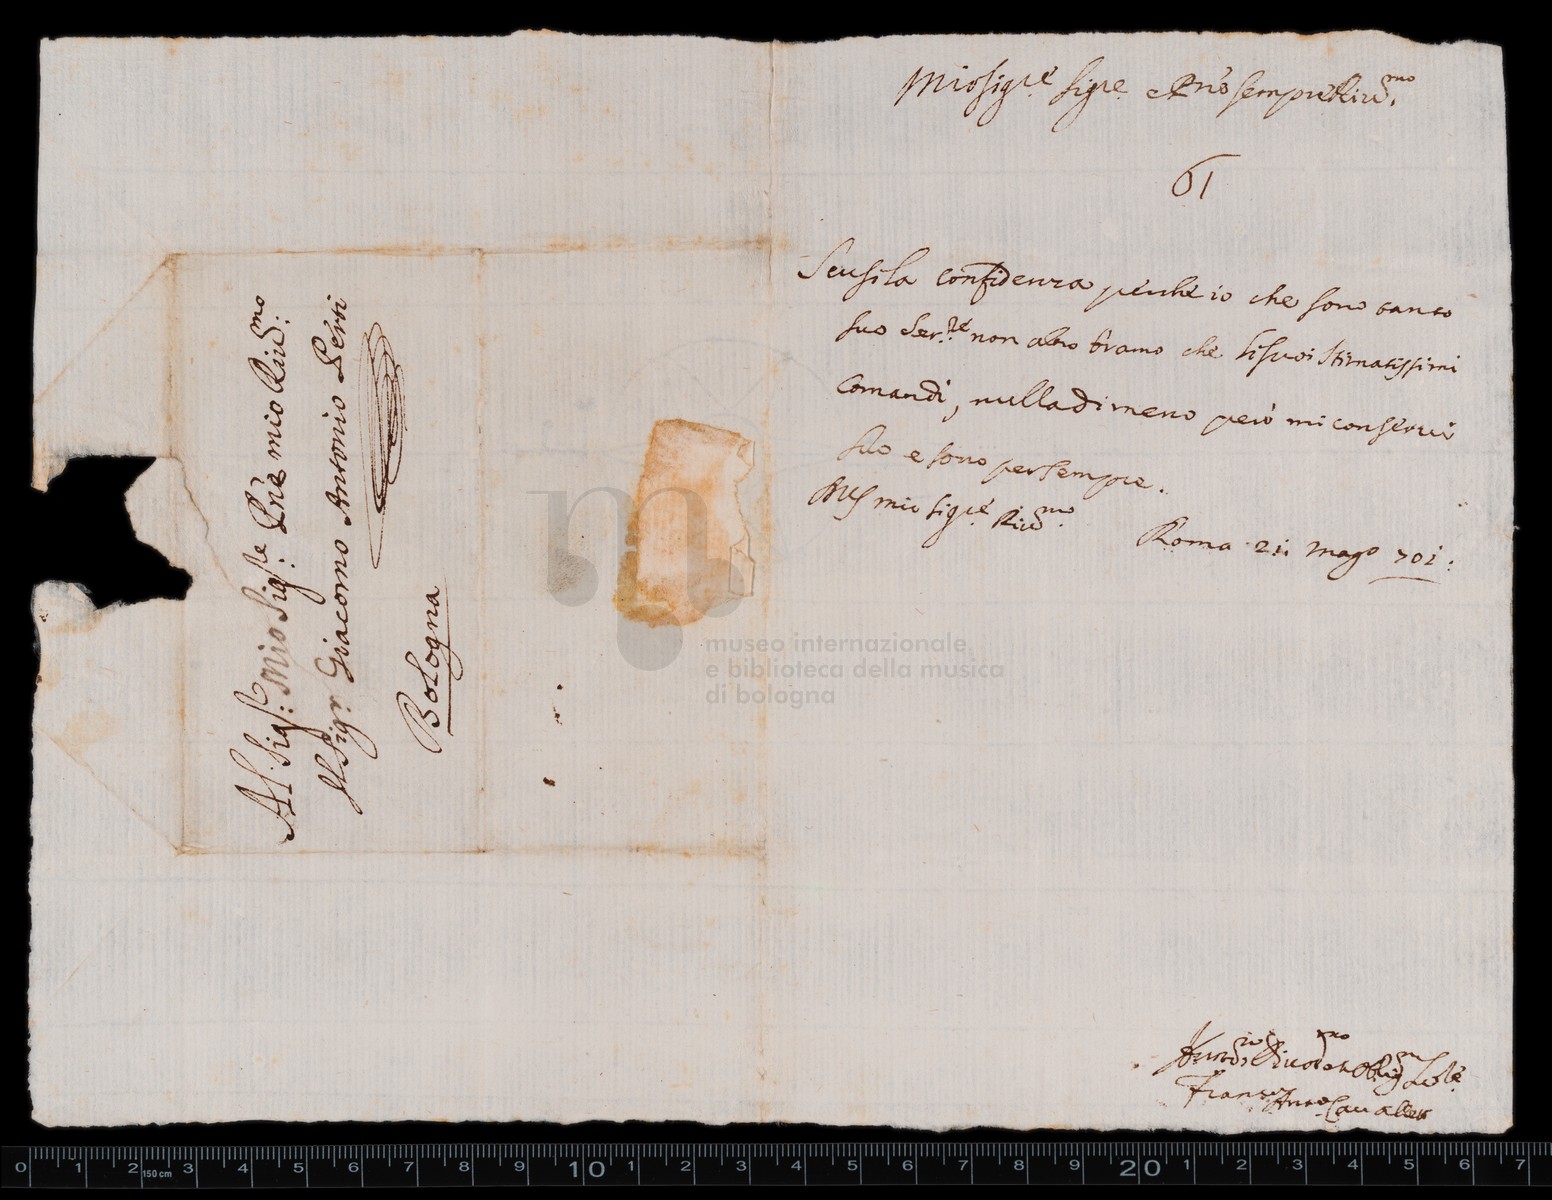 Al Sig.r Mio Sig.re P.ne mio Riu.mo
Il Sig.r Giacomo Antonio Perti
Bologna
Mio Sig.re Sig.re e P.ne sempre Riu.mo
61
Scusi la confidenza perche io che sono tanto
suo Ser.re non altro bramo che li suoi stimatissimi
Comandi, nulladimeno però mi conservi
suo e sono per sempre.
mio Sig.re Riu.mo
Roma 21 Mago 701:
Obblig
Fran.co Ant.o Cavaller
museo internazionale
e biblioteca della musica
di bologna
0 1 2 3 4 5 6 7 8 9 10 1 2 3 4 5 6 7 8 9 20 1 2 3 4 5 6 7
150 cm